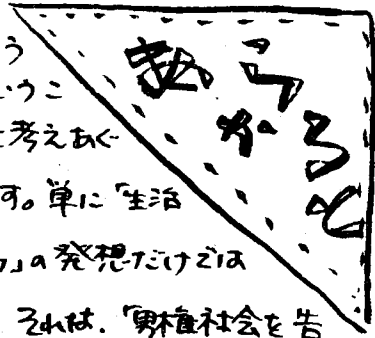 う
いうこ
と考えあぐ
す。単に「生活
」の発想だけでは
それは、「男権社会を告